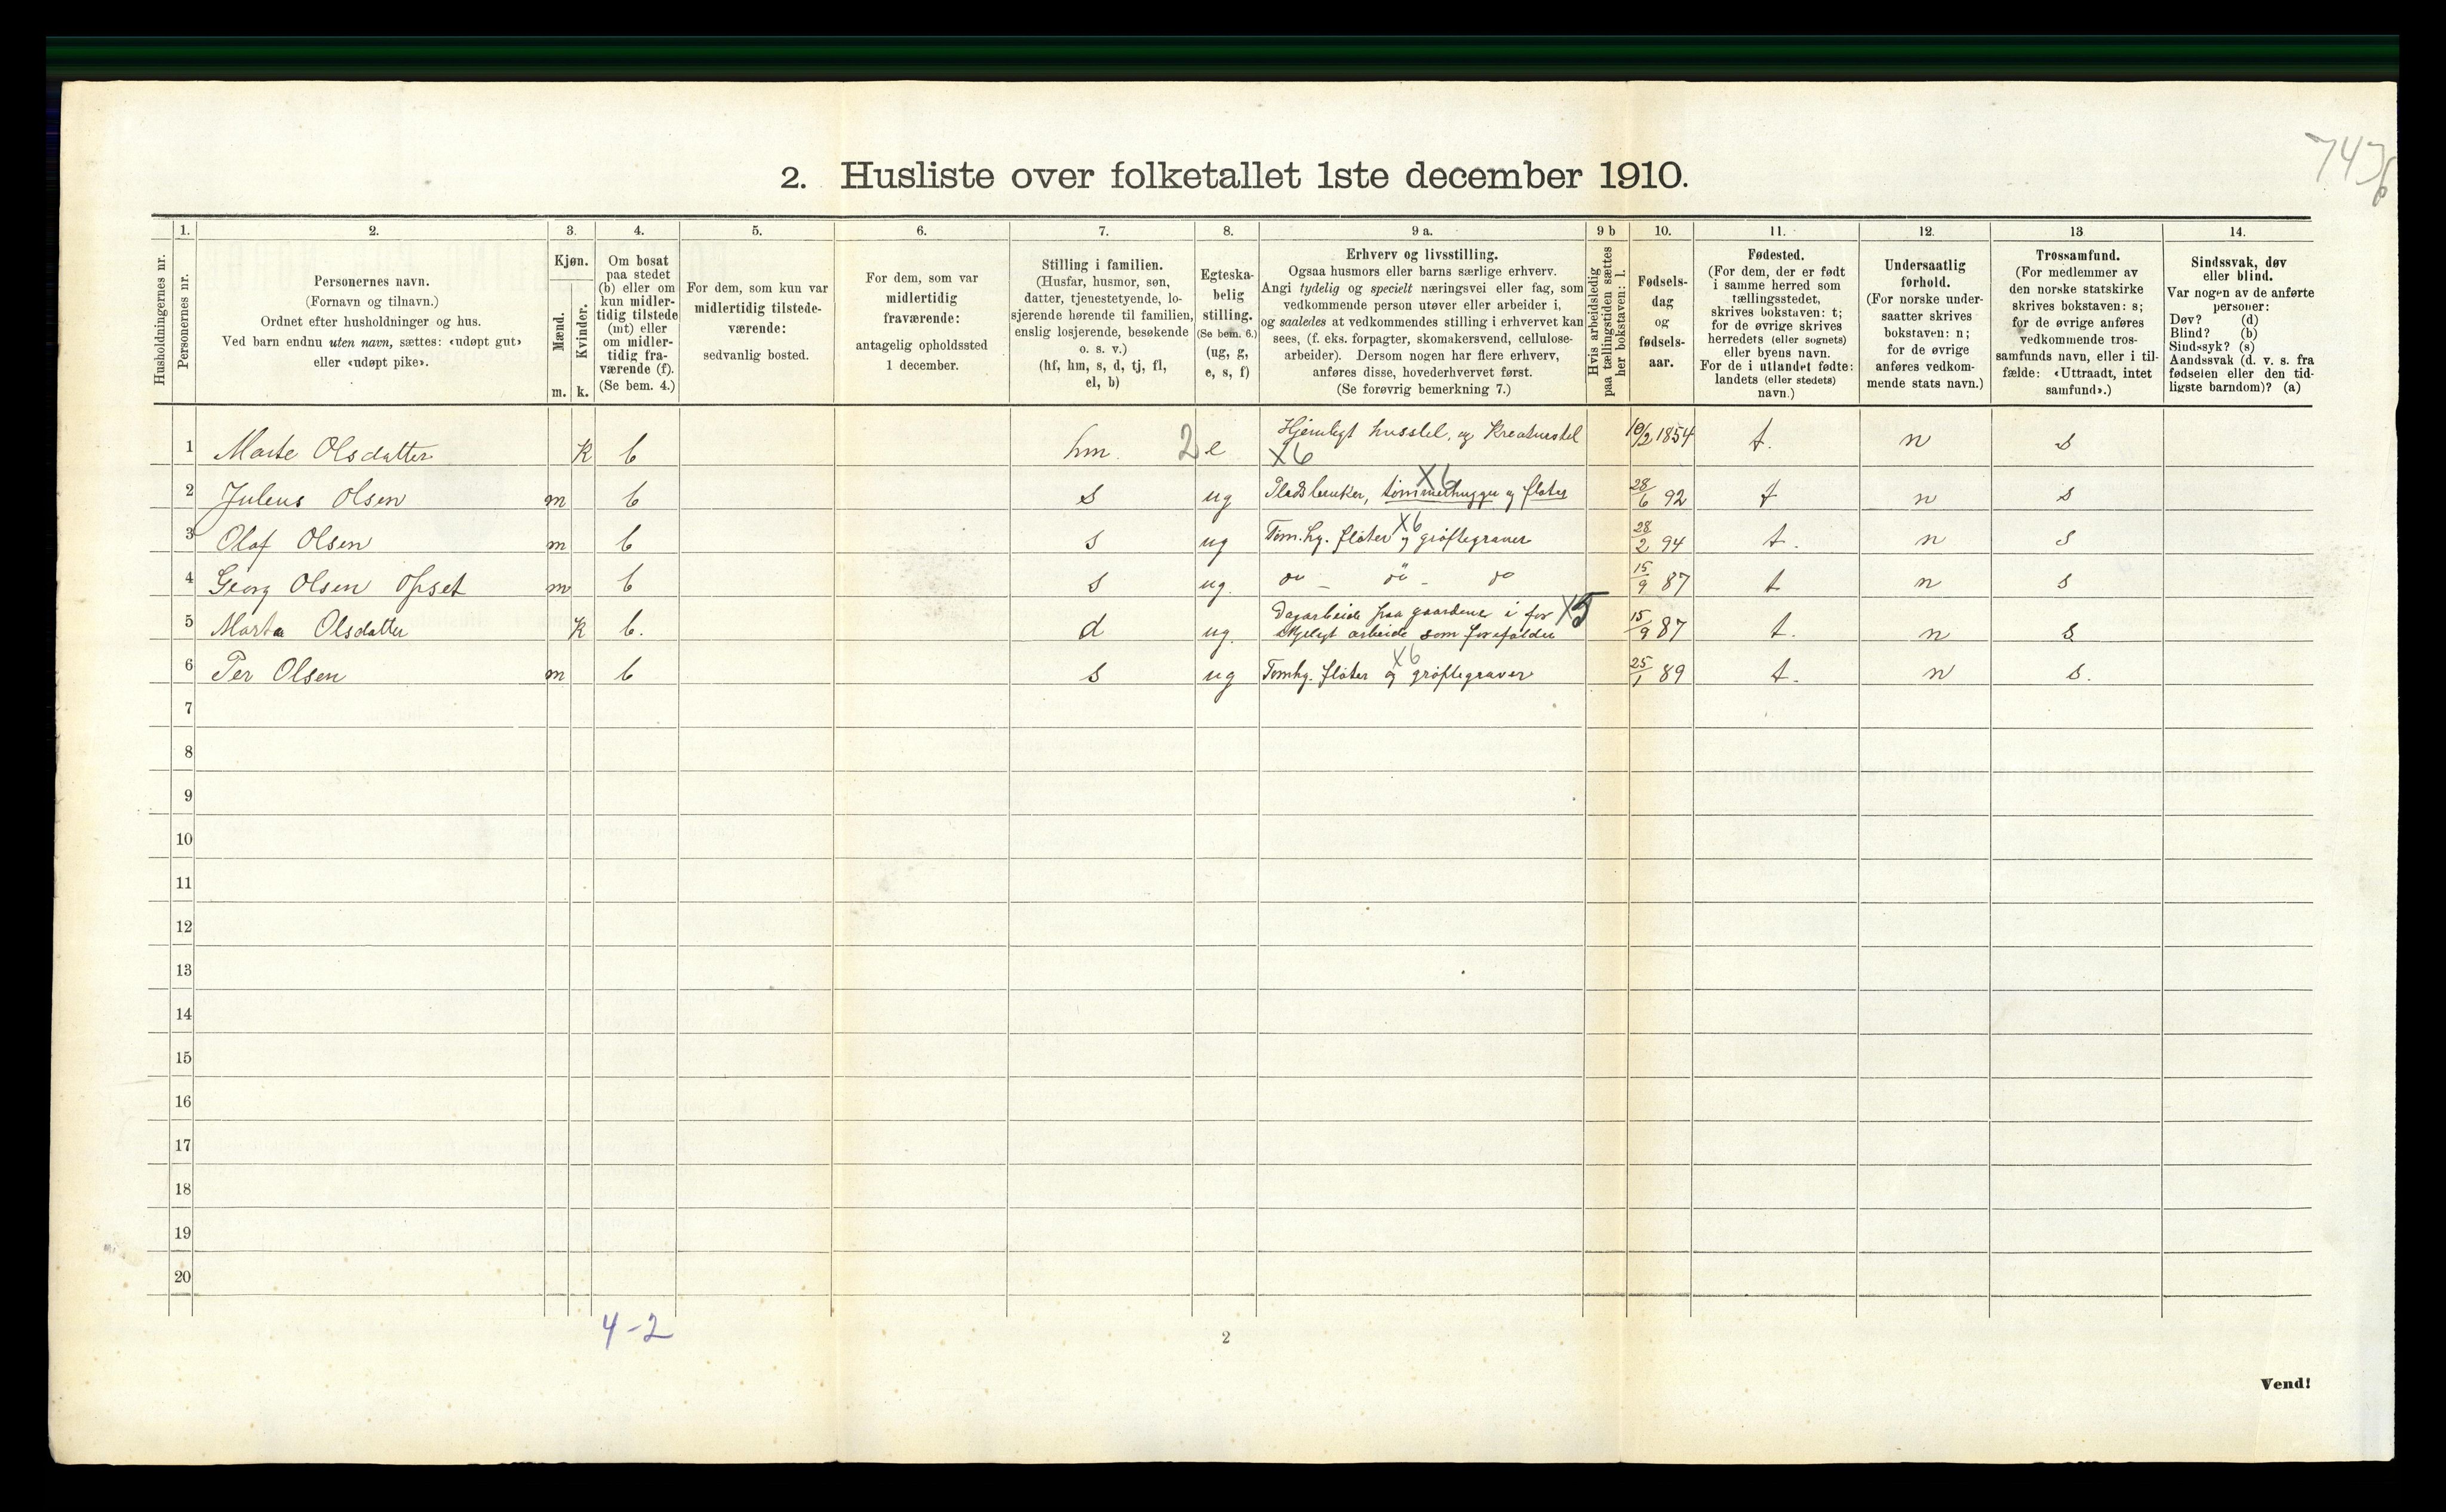 7436
2. Husliste over folketallet 1ste december 1910.
Husholdningernes nr.
1.
Personernes nr.
2.
Personernes navn.
(Fornavn og tilnavn.)
Ordnet efter husholdninger og hus.
Ved barn endnu uten navn, sættes: «udøpt gut»
eller «udøpt pike».
3.
Kjøn.
Mænd.
m.
Kvinder.
k.
4.
Om bosat
paa stedet
(b) eller om
kun midler-
tidig tilstede
(mt) eller
om midler-
tidig fra-
værende (f).
(Se bem. 4.)
5.
For dem, som kun var
midlertidig tilstede-
værende:
sedvanlig bosted.
6.
For dem, som var
midlertidig
fraværende:
antagelig opholdssted
1 december.
7.
Stilling i familien.
(Husfar, husmor, søn,
datter, tjenestetyende, lo-
sjerende hørende til familien,
enslig losjerende, besøkende
o. s. v.)
(hf, hm, s, d, tj, fl,
el, b)
8.
Egteska-
belig
stilling.
(Se bem. 6.)
(ug, g,
e, s, f)
9 a.
Erhverv og livsstilling.
Ogsaa husmors eller barns særlige erhverv.
Angi tydelig og specielt næringsvei eller fag, som
vedkommende person utøver eller arbeider i,
og saaledes at vedkommendes stilling i erhvervet kan
sees, (f. eks. forpagter, skomakersvend, cellulose-
arbeider). Dersom nogen har flere erhverv,
anføres disse, hovederhvervet først.
(Se forøvrig bemerkning 7.)
9 b
Hvis arbeidsledig
paa tællingstiden sættes
her bokstaven: l.
10.
Fødsels-
dag
og
fødsels-
aar.
11.
Fødested.
(For dem, der er født
i samme herred som
tællingsstedet,
skrives bokstaven: t;
for de øvrige skrives
herredets (eller sognets)
eller byens navn.
For de i utlandet fødte:
landets (eller stedets)
navn.)
12.
Undersaatlig
forhold.
(For norske under-
saatter skrives
bokstaven: n;
for de øvrige
anføres vedkom-
mende stats navn.)
13
Trossamfund.
(For medlemmer av
den norske statskirke
skrives bokstaven: s;
for de øvrige anføres
vedkommende tros-
samfunds navn, eller i til-
fælde: «Uttraadt, intet
samfund».)
14.
Sindssvak, døv
eller blind.
Var nogen av de anførte
personer:
Døv? (d)
Blind? (b)
Sindssyk? (s)
Aandssvak (d. v. s. fra
fødselen eller den tid-
ligste barndom)? (a)
1 Marte Olsdatter K b hm 2 e Hjemligt husstel, og Kreaturstel X6 10/2 1854 t. n s
2 Juleus Olsen m b s ug Pladsbruker, tømmerhugger og fløter X6 28/6 92 t n s
3 Olof Olsen m b s ug Tøm.hg. fløter og grøftegraver X6 28/2 94 t. n s
4 Georg Olsen Opset m b s ug. do - do - do 15/9 87 t n s
5 Marta Olsdatter K b. d ug. Dagarbeide paa gaardene i for X5
skjeligt arbeide som forefalder 15/9 87 t. n s
6 Per Olsen m b s ug Tømhg. fløter og grøftegraver X6 25/1 89 t. n s.
7
8
9
10
11
12
13
14
15
16
17
18
19
20
4-2
2
Vend!